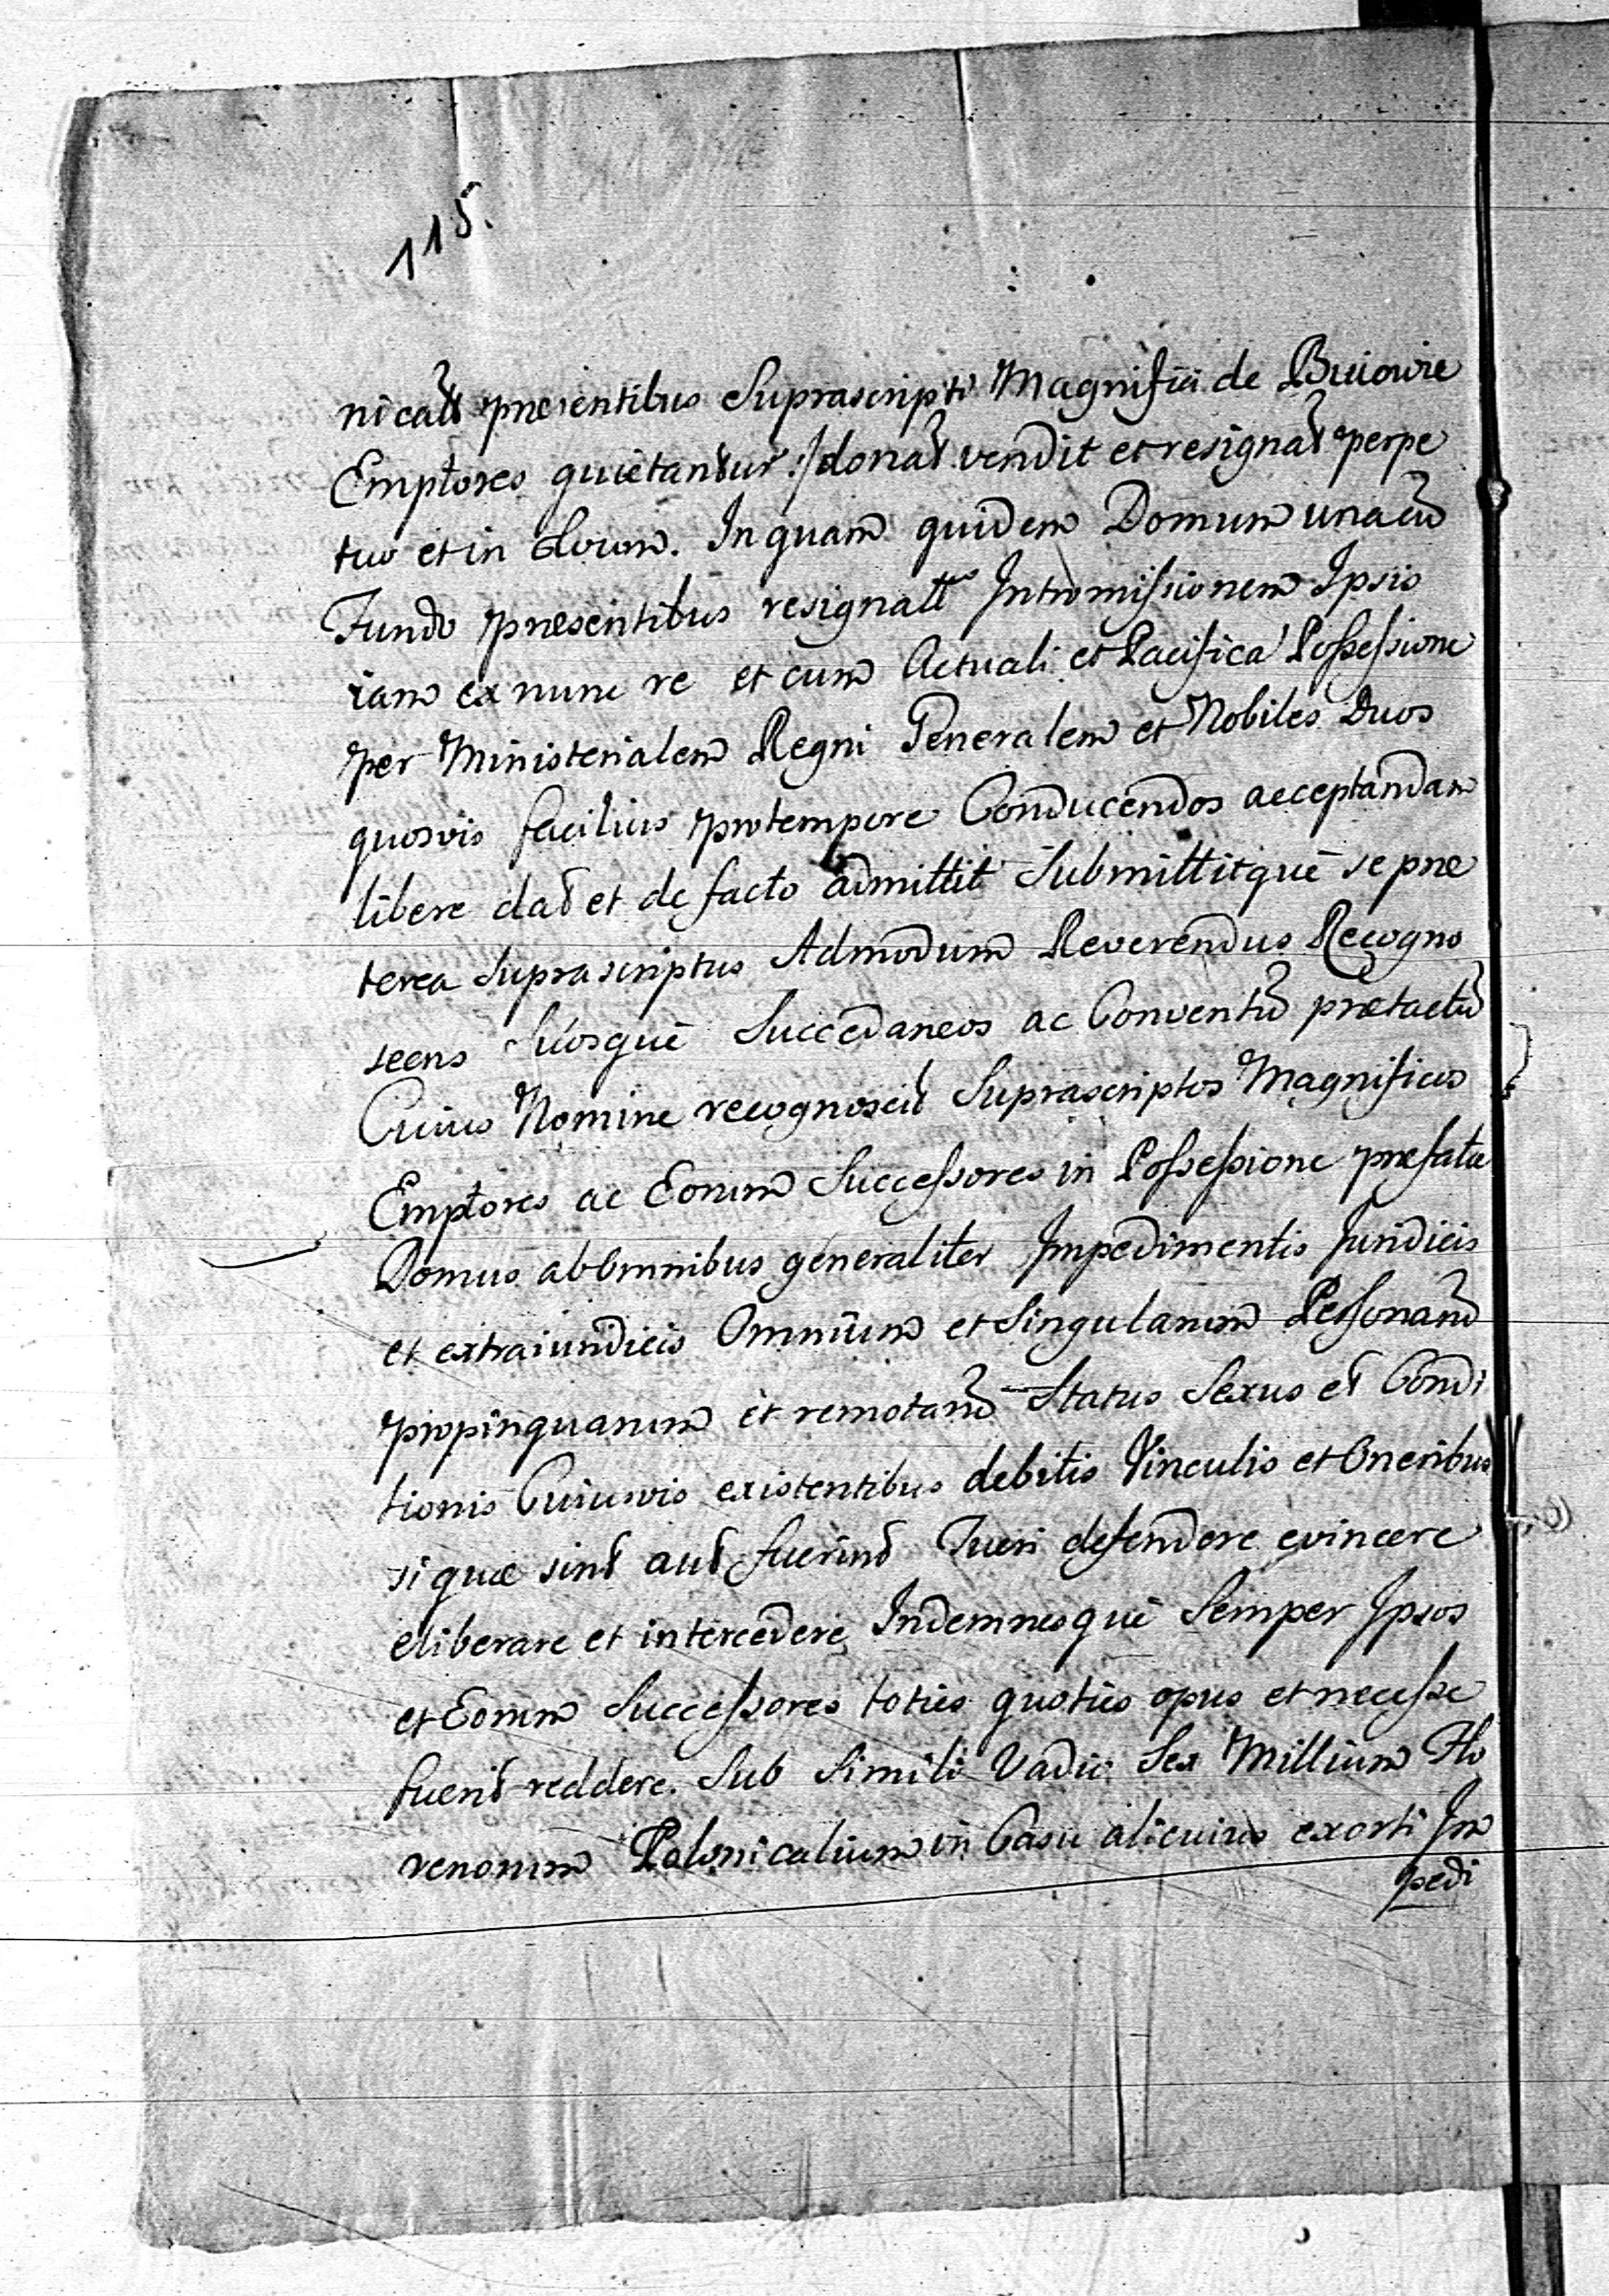 115.
nicalt presentibus Suprascripti Magnifici de Buiowie
Emptores quietantur :/ donat vendit et resignat perpe
tuo et in Ævum. In quam quidem Domum una cũ
Fundo presentibus resignatt Intromissionem Ipsis
iam ex nunc re et cum Actuali et Pacifica Possessione
per Ministerialem Regni Generalem et Nobiles Duos
quosvis facilius protempore Conducendos acceptandam
libere dat et de facto admittit Submittitque se præ
terea Suprascriptus Admodum Reverendus Recogno
scens Suosque Succedaneos ac Conventũ prætactũ
Cuius Nomine recognoscit Suprascriptos Magnificos
Emptores ac Eorum Successores in Possessione prefatæ
Domus ab Omnibus generaliter Impedimentis Juridicis
et extraiuridicis Omnium et Singularum Personarũ
propinquarum et remotarũ Status Sexus et Condi
tionis Cuiusvis existentibus debitis Vinculis et Oneribus
si quæ sint aut fuerint Tueri defendere evincere
eliberare et intercedere Indemnesque Semper Ipsos
et Eorum Successores toties quoties opus et necesse
fuerit reddere. Sub Simili Vadio Sex Millium Flo
renorum Polonicalium in Casu alicuius exorti Im
pedi